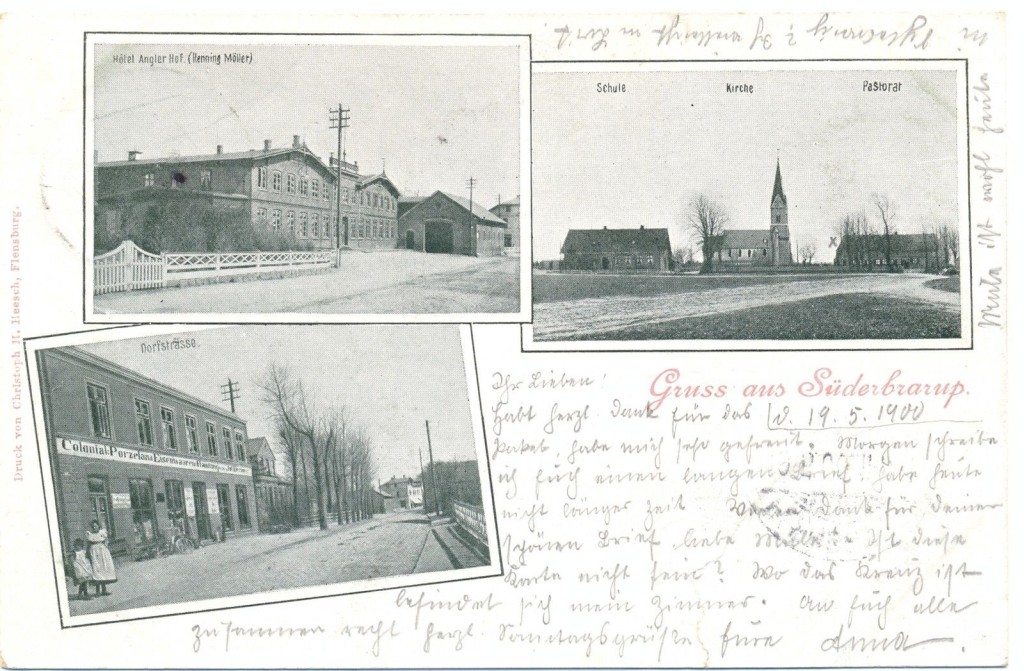 Hôtel Angler Hof (Henning Möller)
Schule Kirche Pastorat
X
Dorfstrasse.
Colonial-Porzelan & Eisenwaren
Druck von Christoph H. Heesch, Flensburg.
Gruss aus Süderbrarup.
d. 19.5.1900
Ihr Lieben!
habt herzl. Dank für das
Paket, habe mich sehr gefreut. Morgen schreibe
ich Euch einen langen Brief, habe heute
nicht länger Zeit Vielen Dank für deinen
schönen Brief, liebe Ist diese
Karte nicht fein? Wo das Kreuz ist
befindet sich mein Zimmer. An Euch alle
zusammen recht herzl. Sonntagsgrüße Eure Anna
ist wohl heute
in